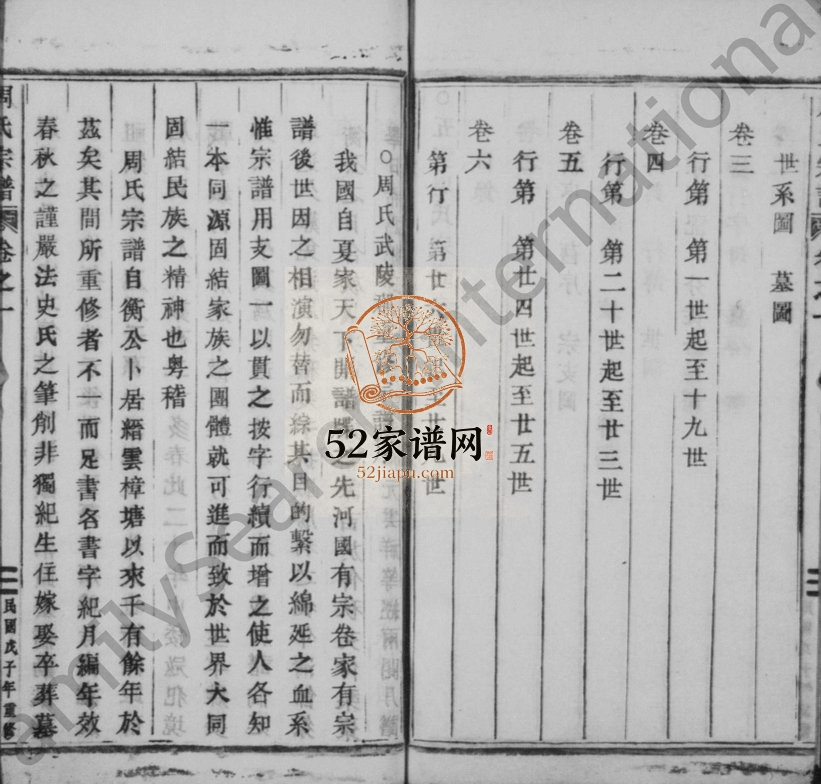 世系圖 墓圖
卷三
行第 第一世起至十九世
卷四
行第 第二十世起至廿三世
卷五
行第 第廿四世起至廿五世
卷六
第行 第廿 世
周氏武陵
我國自夏家天下 譜 之先河國有宗卷家有宗
譜後世因之相演勿替而綜其目的繫以綿延之血系
惟宗譜用支圖一以貫之按字行續而增之使人各知
本同源固結家族之團體就可進而致於世界大同
固結民族之精神也粤稽
周氏宗譜自衡公卜居縉雲樟塘以來千有餘年於
茲矣其間所重修者不一而足書名書字紀月編年效
春秋之謹嚴法史氏之筆削非獨紀生住嫁娶卒葬墓
周氏宗譜 卷之一
民國戊子年重修
52家谱网
52jiapu.com
FamilySearch International